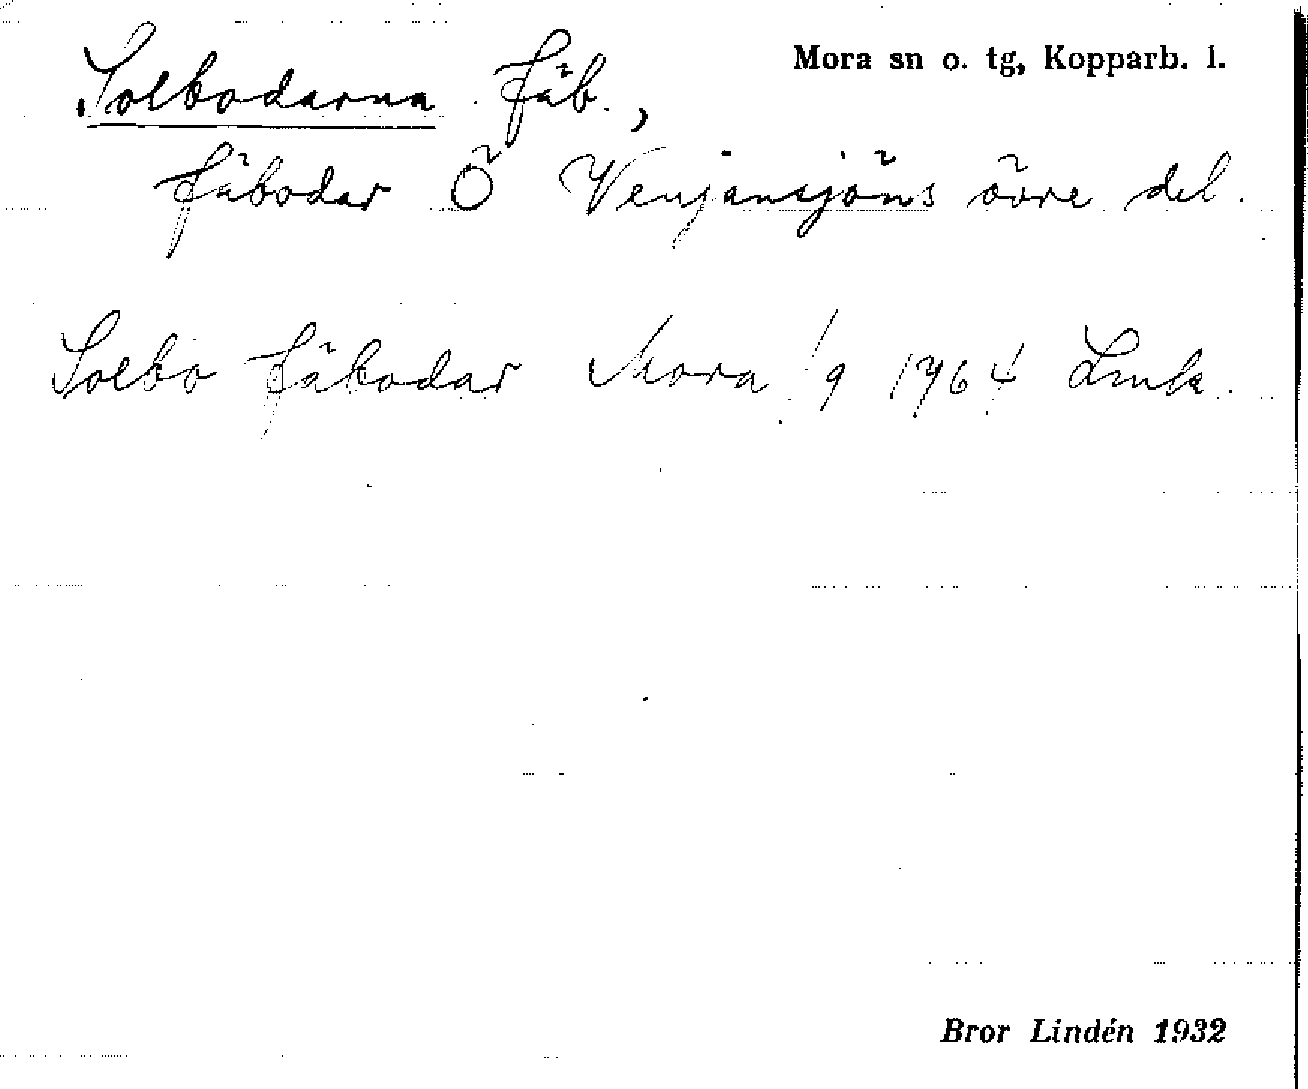 Solbodarna fäb.,
Mora sn o. tg, Kopparb. l.
fäbodar Ö Venjansjöns övre del.
Solbo fäbodar Mora 1/9 1764 Lmk.
Bror Lindén 1932